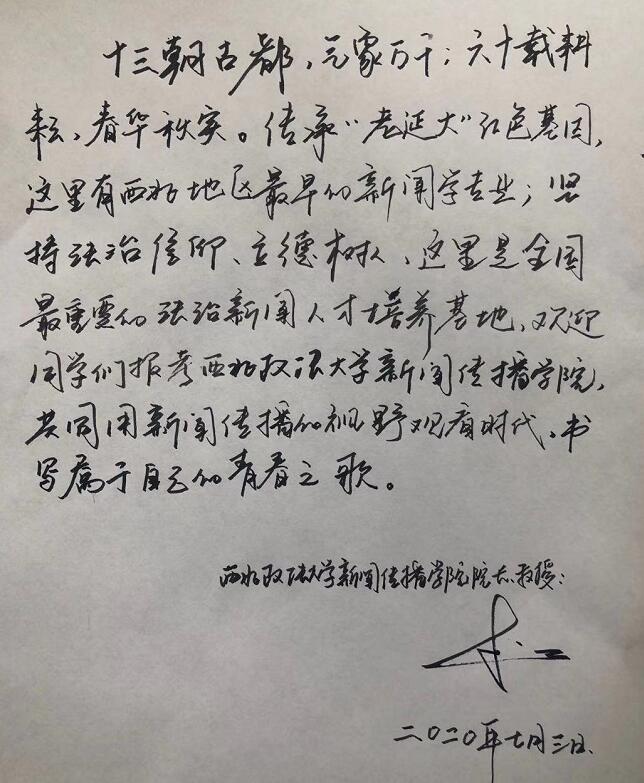 十三朝古都,气象万千;六十载耕
耘,春华秋实。传承“老延大”红色基因,
这里有西北地区最早的新闻学专业;坚
持法治信仰、立德树人,这里是全国
最重要的法治新闻人才培养基地,欢迎
同学们报考西北政法大学新闻传播学院,
共同用新闻传播的视野观看时代,书
写属于自己的青春之歌。
西北政法大学新闻传播学院院长教授:
二〇二〇年七月三日